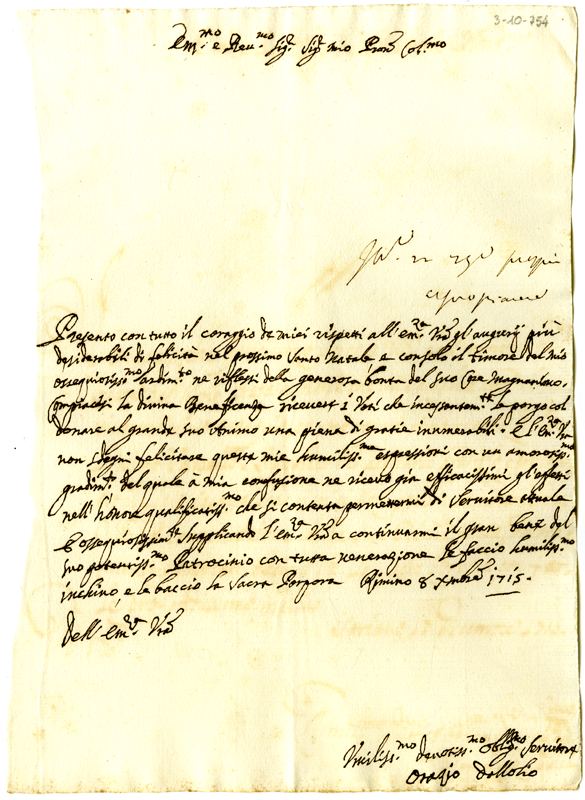 3-10-754
Em.mo e Reu.mo Sig.r Sig.r mio Pron.e Col.mo
Presento con tutto il coraggio de miei rispetti all'em.za Vra gl'augurij più
desiderabili di felicità nel prossimo Santo Natale e consolo il timore del mio
ossequiosiss.mo ardim.to ne riflessi della generosa bontà del Suo Cuore Magnanimo.
Compiacasi la divina Beneficenza riceuere i Voti che incessantem.te le porgo col
donare al grande suo Animo una piena di gratie inumerabili. E l'Em.za Vra
non sdegni felicitare queste mie humiliss.me espressioni con un amoreuoliss.mo
gradim.to del quale à mia confusione ne riceuo già efficacissimi gl'effetti
nell'honore qualificatiss.mo che si contenta permettermi di Seruitore attuale
Supplicando l'em.za Vra a continuarmi il gran bene del
suo potentiss.mo Patrocinio con tutta ueneratione le faccio humiliss.mo
inchino, e le baccio la Sacra Porpora Rimino 8 Xmbre 1715.
Dell'em.za Vra
Vmiliss.mo deuotiss.mo oblig.mo Seruitore
Orazio dallolio